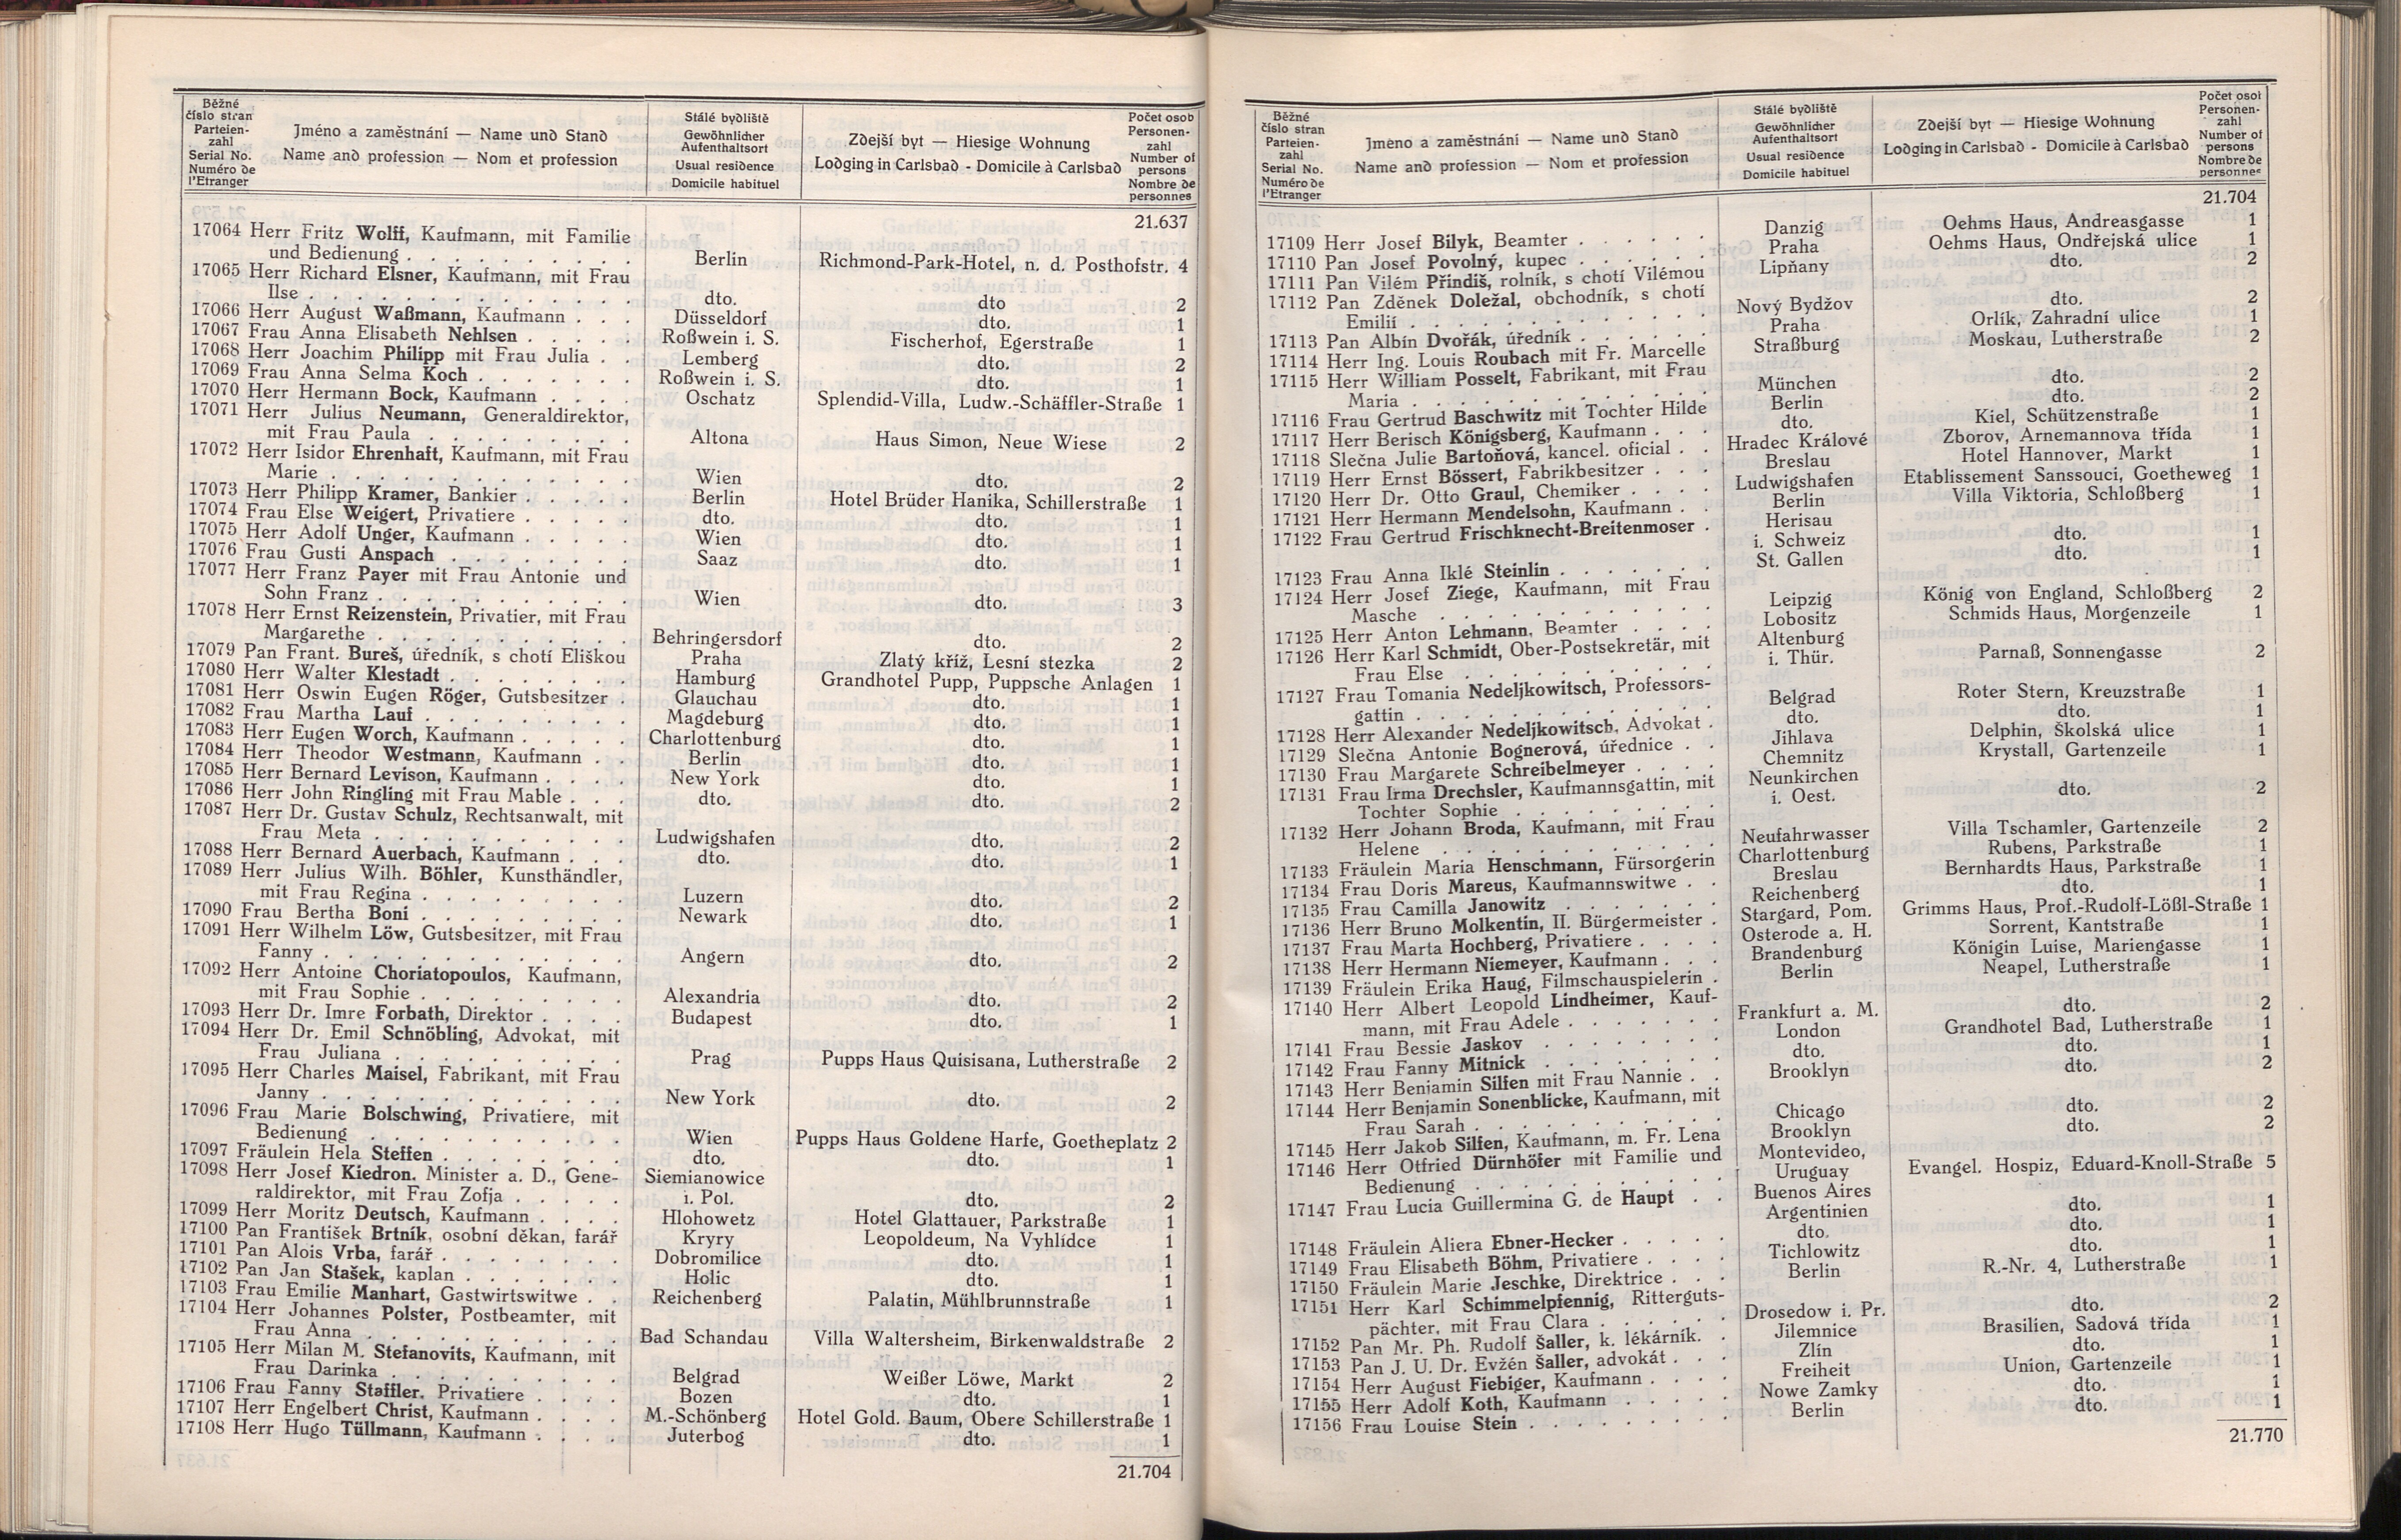 Běžné
číslo stran
Parteien-
zahl
Serial No.
Numéro de
l'Etranger
Jméno a zaměstnání — Name und Stand
Name and profession — Nom et profession
Stálé bydliště
Gewöhnlicher
Aufenthaltsort
Usual residence
Domicile habituel
Zdejší byt — Hiesige Wohnung
Lodging in Carlsbad - Domicile à Carlsbad
Počet osob
Personen-
zahl
Number of
persons
Nombre de
personnes
21.637
17064 Herr Fritz Wolff, Kaufmann, mit Familie
und Bedienung . . . . . . . . . . Berlin Richmond-Park-Hotel, n. d. Posthofstr. 4
17065 Herr Richard Elsner, Kaufmann, mit Frau
Ilse . . . . . . . . . . . . . . dto. dto 2
17066 Herr August Waßmann, Kaufmann . . . Düsseldorf dto. 1
17067 Frau Anna Elisabeth Nehlsen . . . . . Roßwein i. S. Fischerhof, Egerstraße 1
17068 Herr Joachim Philipp mit Frau Julia . . Lemberg dto. 2
17069 Frau Anna Selma Koch . . . . . . . Roßwein i. S. dto. 1
17070 Herr Hermann Bock, Kaufmann . . . . Oschatz Splendid-Villa, Ludw.-Schäffler-Straße 1
17071 Herr Julius Neumann, Generaldirektor,
mit Frau Paula . . . . . . . . . Altona Haus Simon, Neue Wiese 2
17072 Herr Isidor Ehrenhaft, Kaufmann, mit Frau
Marie . . . . . . . . . . . . . Wien dto. 2
17073 Herr Philipp Kramer, Bankier . . . . . Berlin Hotel Brüder Hanika, Schillerstraße 1
17074 Frau Else Weigert, Privatiere . . . . . dto. dto. 1
17075 Herr Adolf Unger, Kaufmann . . . . . Wien dto. 1
17076 Frau Gusti Anspach . . . . . . . . Saaz dto. 1
17077 Herr Franz Payer mit Frau Antonie und
Sohn Franz . . . . . . . . . . . Wien dto. 3
17078 Herr Ernst Reizenstein, Privatier, mit Frau
Margarethe . . . . . . . . . . . Behringersdorf dto. 2
17079 Pan Frant. Bureš, úředník, s chotí Eliškou Praha Zlatý kříž, Lesní stezka 2
17080 Herr Walter Klestadt . . . . . . . . Hamburg Grandhotel Pupp, Puppsche Anlagen 1
17081 Herr Oswin Eugen Röger, Gutsbesitzer . Glauchau dto. 1
17082 Frau Martha Lauf . . . . . . . . . Magdeburg dto. 1
17083 Herr Eugen Worch, Kaufmann . . . . . Charlottenburg dto. 1
17084 Herr Theodor Westmann, Kaufmann . . Berlin dto. 1
17085 Herr Bernard Levison, Kaufmann . . . . New York dto. 1
17086 Herr John Ringling mit Frau Mable . . . dto. dto. 2
17087 Herr Dr. Gustav Schulz, Rechtsanwalt, mit
Frau Meta . . . . . . . . . . . Ludwigshafen dto. 2
17088 Herr Bernard Auerbach, Kaufmann . . . dto. dto. 1
17089 Herr Julius Wilh. Böhler, Kunsthändler,
mit Frau Regina . . . . . . . . . Luzern dto. 2
17090 Frau Bertha Boni . . . . . . . . . Newark dto. 1
17091 Herr Wilhelm Löw, Gutsbesitzer, mit Frau
Fanny . . . . . . . . . . . . . Angern dto. 2
17092 Herr Antoine Choriatopoulos, Kaufmann,
mit Frau Sophie . . . . . . . . . Alexandria dto. 2
17093 Herr Dr. Imre Forbath, Direktor . . . . Budapest dto. 1
17094 Herr Dr. Emil Schnöbling, Advokat, mit
Frau Juliana . . . . . . . . . . Prag Pupps Haus Quisisana, Lutherstraße 2
17095 Herr Charles Maisel, Fabrikant, mit Frau
Janny . . . . . . . . . . . . . New York dto. 2
17096 Frau Marie Bolschwing, Privatiere, mit
Bedienung . . . . . . . . . . . Wien Pupps Haus Goldene Harfe, Goetheplatz 2
17097 Fräulein Hela Steffen . . . . . . . . dto. dto. 1
17098 Herr Josef Kiedron, Minister a. D., Gene- Siemianowice
raldirektor, mit Frau Zofja . . . . . i. Pol. dto. 2
17099 Herr Moritz Deutsch, Kaufmann . . . . Hlohowetz Hotel Glattauer, Parkstraße 1
17100 Pan František Brtník, osobní děkan, farář Kryry Leopoldeum, Na Vyhlídce 1
17101 Pan Alois Vrba, farář . . . . . . . . Dobromilice dto. 1
17102 Pan Jan Stašek, kaplan . . . . . . . Holic dto. 1
17103 Frau Emilie Manhart, Gastwirtswitwe . . Reichenberg Palatin, Mühlbrunnstraße 1
17104 Herr Johannes Polster, Postbeamter, mit
Frau Anna . . . . . . . . . . . Bad Schandau Villa Waltersheim, Birkenwaldstraße 2
17105 Herr Milan M. Stefanovits, Kaufmann, mit
Frau Darinka . . . . . . . . . . Belgrad Weißer Löwe, Markt 2
17106 Frau Fanny Staffler, Privatiere . . . . Bozen dto. 1
17107 Herr Engelbert Christ, Kaufmann . . . . M.-Schönberg Hotel Gold. Baum, Obere Schillerstraße 1
17108 Herr Hugo Tüllmann, Kaufmann . . . . Juterbog dto. 1
21.704
Běžné
číslo stran
Parteien-
zahl
Serial No.
Numéro de
l'Etranger
Jméno a zaměstnání — Name und Stand
Name and profession — Nom et profession
Stálé bydliště
Gewöhnlicher
Aufenthaltsort
Usual residence
Domicile habituel
Zdejší byt — Hiesige Wohnung
Lodging in Carlsbad - Domicile à Carlsbad
Počet osob
Personen-
zahl
Number of
persons
Nombre de
personnes
21.704
17109 Herr Josef Bilyk, Beamter . . . . . . Danzig Oehms Haus, Andreasgasse 1
17110 Pan Josef Povolný, kupec . . . . . . Praha Oehms Haus, Ondřejská ulice 1
17111 Pan Vilém Příndiš, rolník, s chotí Vilémou Lipňany dto. 2
17112 Pan Zděnek Doležal, obchodník, s chotí
Emilií . . . . . . . . . . . . . Nový Bydžov dto. 2
17113 Pan Albín Dvořák, úředník . . . . . . Praha Orlík, Zahradní ulice 1
17114 Herr Ing. Louis Roubach mit Fr. Marcelle Straßburg Moskau, Lutherstraße 2
17115 Herr William Posselt, Fabrikant, mit Frau
Maria . . . . . . . . . . . . . München dto. 2
17116 Frau Gertrud Baschwitz mit Tochter Hilde Berlin dto. 2
17117 Herr Berisch Königsberg, Kaufmann . . . dto. Kiel, Schützenstraße 1
17118 Slečna Julie Bartoňová, kancel. oficial . . Hradec Králové Zborov, Arnemannova třída 1
17119 Herr Ernst Bössert, Fabrikbesitzer . . . Breslau Hotel Hannover, Markt 1
17120 Herr Dr. Otto Graul, Chemiker . . . . Ludwigshafen Etablissement Sanssouci, Goetheweg 1
17121 Herr Hermann Mendelsohn, Kaufmann . . Berlin Villa Viktoria, Schloßberg 1
17122 Frau Gertrud Frischknecht-Breitenmoser . Herisau
i. Schweiz dto. 1
17123 Frau Anna Iklé Steinlin . . . . . . . St. Gallen dto. 1
17124 Herr Josef Ziege, Kaufmann, mit Frau
Masche . . . . . . . . . . . . Leipzig König von England, Schloßberg 2
17125 Herr Anton Lehmann, Beamter . . . . Lobositz Schmids Haus, Morgenzeile 1
17126 Herr Karl Schmidt, Ober-Postsekretär, mit Altenburg
Frau Else . . . . . . . . . . . i. Thür. Parnaß, Sonnengasse 2
17127 Frau Tomania Nedeljkowitsch, Professors-
gattin . . . . . . . . . . . . . Belgrad Roter Stern, Kreuzstraße 1
17128 Herr Alexander Nedeljkowitsch, Advokat . dto. dto. 1
17129 Slečna Antonie Bognerová, úřednice . . Jihlava Delphin, Školská ulice 1
17130 Frau Margarete Schreibelmeyer . . . . Chemnitz Krystall, Gartenzeile 1
17131 Frau Irma Drechsler, Kaufmannsgattin, mit Neunkirchen
Tochter Sophie . . . . . . . . . i. Oest. dto. 2
17132 Herr Johann Broda, Kaufmann, mit Frau
Helene . . . . . . . . . . . . Neufahrwasser Villa Tschamler, Gartenzeile 2
17133 Fräulein Maria Henschmann, Fürsorgerin Charlottenburg Rubens, Parkstraße 1
17134 Frau Doris Mareus, Kaufmannswitwe . . Breslau Bernhardts Haus, Parkstraße 1
17135 Frau Camilla Janowitz . . . . . . . Reichenberg dto. 1
17136 Herr Bruno Molkentin, II. Bürgermeister . Stargard, Pom. Grimms Haus, Prof.-Rudolf-Lößl-Straße 1
17137 Frau Marta Hochberg, Privatiere . . . . Osterode a. H. Sorrent, Kantstraße 1
17138 Herr Hermann Niemeyer, Kaufmann . . . Brandenburg Königin Luise, Mariengasse 1
17139 Fräulein Erika Haug, Filmschauspielerin . Berlin Neapel, Lutherstraße 1
17140 Herr Albert Leopold Lindheimer, Kauf-
mann, mit Frau Adele . . . . . . . Frankfurt a. M. dto. 2
17141 Frau Bessie Jaskov . . . . . . . . London Grandhotel Bad, Lutherstraße 1
17142 Frau Fanny Mitnick . . . . . . . . dto. dto. 1
17143 Herr Benjamin Silfen mit Frau Nannie . . Brooklyn dto. 2
17144 Herr Benjamin Sonenblicke, Kaufmann, mit
Frau Sarah . . . . . . . . . . . Chicago dto. 2
17145 Herr Jakob Silfen, Kaufmann, m. Fr. Lena Brooklyn dto. 2
17146 Herr Otfried Dürnhöfer mit Familie und Montevideo,
Bedienung . . . . . . . . . . . Uruguay Evangel. Hospiz, Eduard-Knoll-Straße 5
17147 Frau Lucia Guillermina G. de Haupt . . Buenos Aires
Argentinien dto. 1
17148 Fräulein Aliera Ebner-Hecker . . . . . dto. dto. 1
17149 Frau Elisabeth Böhm, Privatiere . . . . Tichlowitz dto. 1
17150 Fräulein Marie Jeschke, Direktrice . . . Berlin R.-Nr. 4, Lutherstraße 1
17151 Herr Karl Schimmelpfennig, Ritterguts-
pächter, mit Frau Clara . . . . . . Drosedow i. Pr. dto. 2
17152 Pan Mr. Ph. Rudolf Šaller, k. lékárník. . Jilemnice Brasilien, Sadová třída 1
17153 Pan J. U. Dr. Evžén Šaller, advokát . . . Zlín dto. 1
17154 Herr August Fiebiger, Kaufmann . . . . Freiheit Union, Gartenzeile 1
17155 Herr Adolf Koth, Kaufmann . . . . . Nowe Zamky dto. 1
17156 Frau Louise Stein . . . . . . . . . Berlin dto. 1
21.770